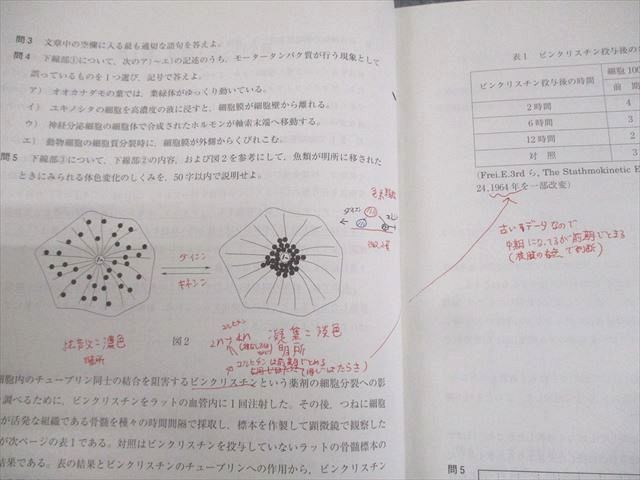 問3 文章中の空欄に入る最も適切な語句を答えよ。
問4 下線部①について、次のア)~エ)の記述のうち、モータータンパク質が行う現象として
誤っているものを1つ選び、記号で答えよ。
ア) オオカナダモの葉では、葉緑体がゆっくり動いている。
イ) ユキノシタの細胞を高濃度の液に浸すと、細胞膜が細胞壁から離れる。
ウ) 神経分泌細胞の細胞体で合成されたホルモンが軸索末端へ移動する。
エ) 動物細胞の細胞質分裂時に、細胞膜が外側からくびれこむ。
問5 下線部③について、下線部②の内容、および図2を参考にして、魚類が明所に移された
ときにみられる体色変化のしくみを、50字以内で説明せよ。
ダイニン
キネシン
拡散=濃色
暗所
図2
凝集=淡色
明所
細胞内のチューブリン同士の結合を阻害するビンクリスチンという薬剤の細胞分裂への影
調べるために、ビンクリスチンをラットの血管内に1回注射した。その後、つねに細胞
が活発な組織である骨髄を種々の時間間隔で採取し、標本を作製して顕微鏡で観察した
が次ページの表1である。対照はビンクリスチンを投与していないラットの骨髄標本の
結果である。表の結果とビンクリスチンのチューブリンへの作用から、ビンクリスチン
表1 ビンクリスチン投与後の
ビンクリスチン投与後の時間 細胞100
前期
2時間 4
6時間 3
12時間 2
対照 3
(Frei.E.3rd ら, The Stathmokinetic E
24,1964年を一部改変)
古いデータなので
問5